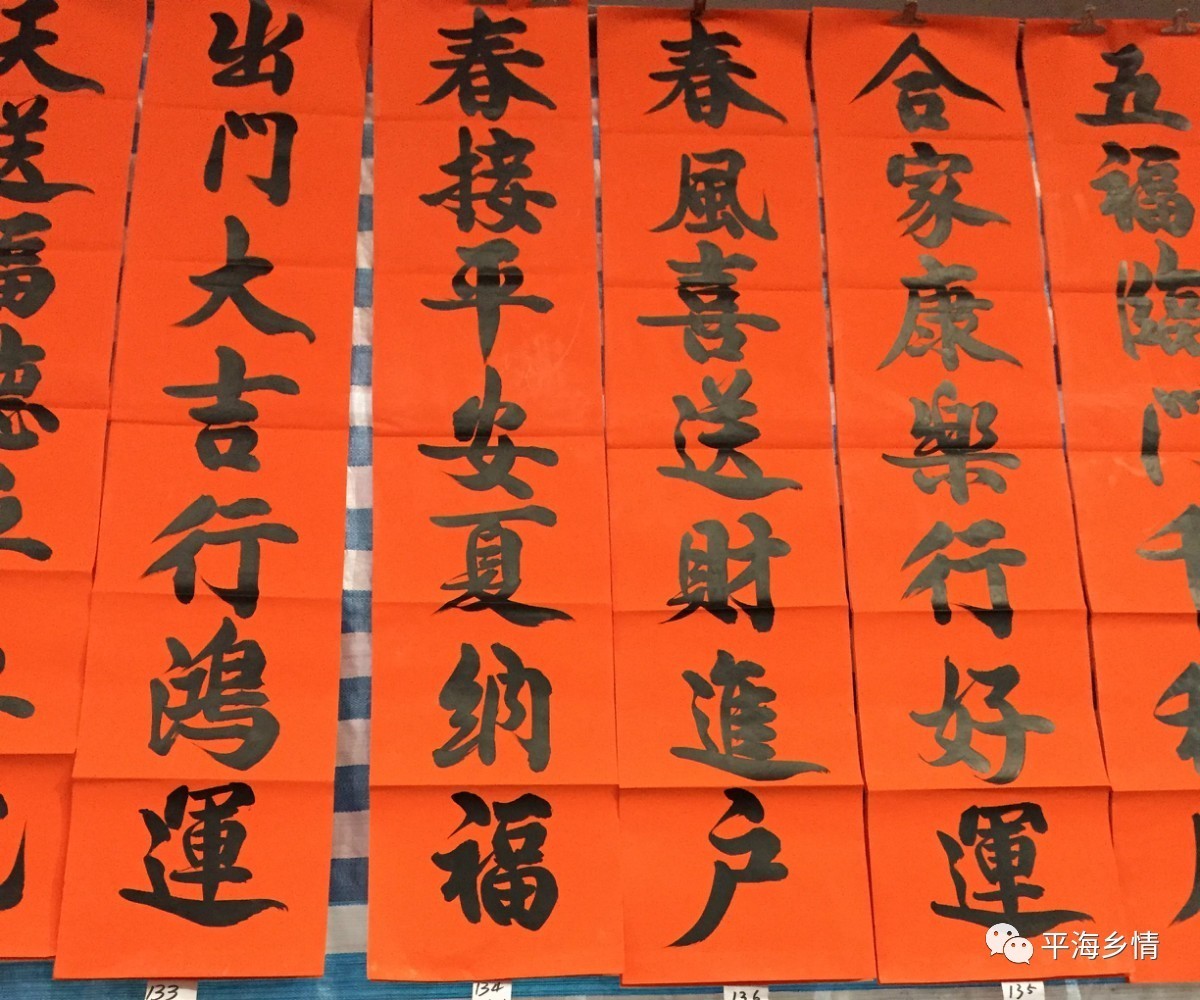 五福臨門千
合家康樂行好運
春風喜送財進戶
春接平安夏納福
出門大吉行鴻運
天送福德
133
134
136
135
平海乡情